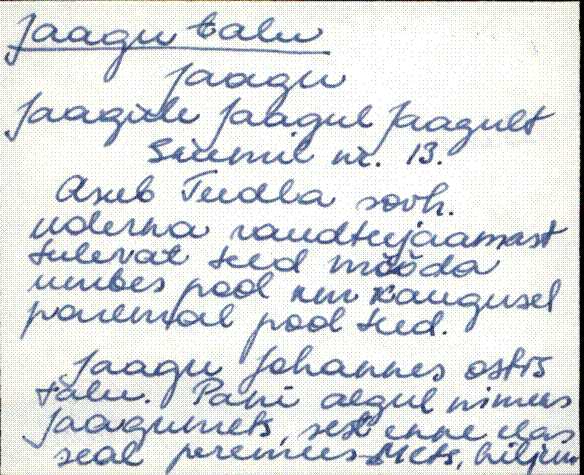 Jaagu talu
Jaagu
Jaagule Jaagul Jaagult
Skeemil nr. 13.
Asub Tudla sovh.
uderna raudteejaamast
tulevat teed mööda
umbes pool km kaugusel
paremal pool teed.
Jaagu Johannes ostis
talu. Pani algul nimeks
Jaagumets, sest enne elas
seal peremees Mets, hiljem